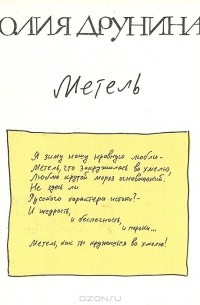 ЮЛИЯ ДРУНИНА
Метель
Я зиму нашу нравную люблю —
Метель, что закружилась во хмелю,
Люблю крутой мороз огневощёкий.
Не здесь ли
Русского характера истоки? —
И щедрость,
и беспечность,
и пороки...
Метель, как ты кружишься во хмелю!
ozon.ru